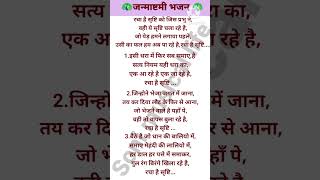 जन्माष्टमी भजन
रचा है सृष्टि को जिस प्रभु ने,
वही ये सृष्टि चला रहे है,
जो पेड़ हमने लगाया पहले,
उसी का फल हम अब पा रहे है,रचा है सृष्टि...
1.इसी धरा में फिर सब समाए है
सत्य नियम यही धरा का,
एक आ रहे है एक जा रहे है,
रचा है सृष्टि...
2.जिन्होंने भेजा जगत में जाना,
तय कर दिया लौट के फिर से आना,
जो भेजने वाले है यहाँ पे,
वही तो वापस बुला रहे है,
रचा है सृष्टि ...
3.बैठे है जो धान की बालियो में,
समाए मेहंदी की लालियो में,
हर डाल हर पत्ते में समाकर,
गुल रंग बिरंगे खिला रहे है,
रचा है सृष्टि...